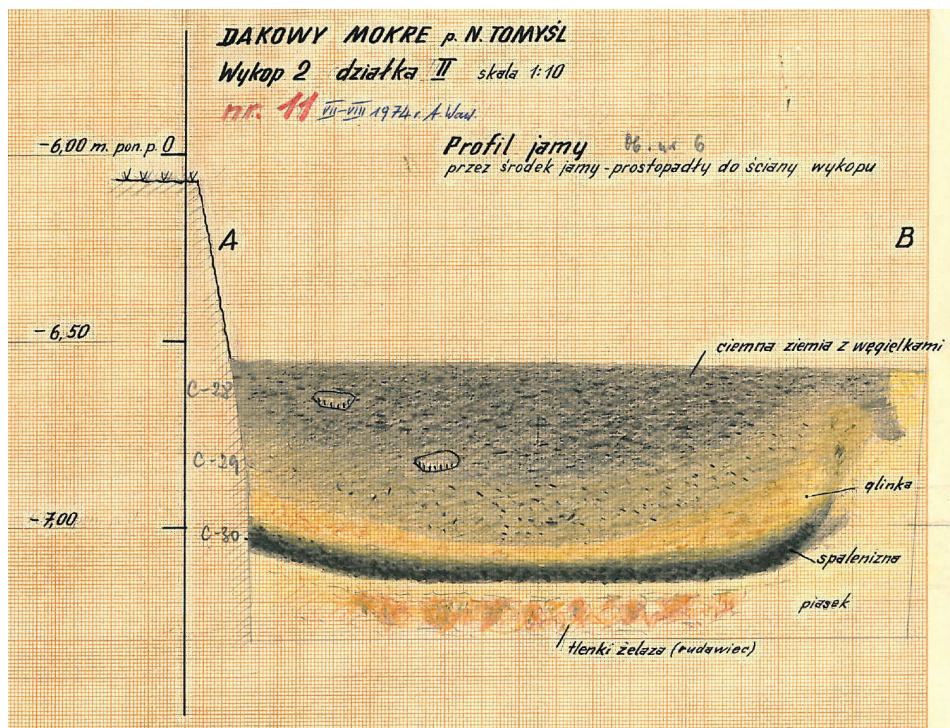 DAKOWY MOKRE p. N. TOMYŚL
Wykop 2 działka II skala 1:10
nr. 11 VII-VIII 1974 r. A. Waw.
Profil jamy Ob. nr 6
przez środek jamy - prostopadły do ściany wykopu
-6,00 m. pon. p. 0
A
B
-6,50
ciemna ziemia z węgielkami
C-28
C-29
glinka
-7,00
C-30
spalenizna
piasek
tlenki żelaza (rudawiec)